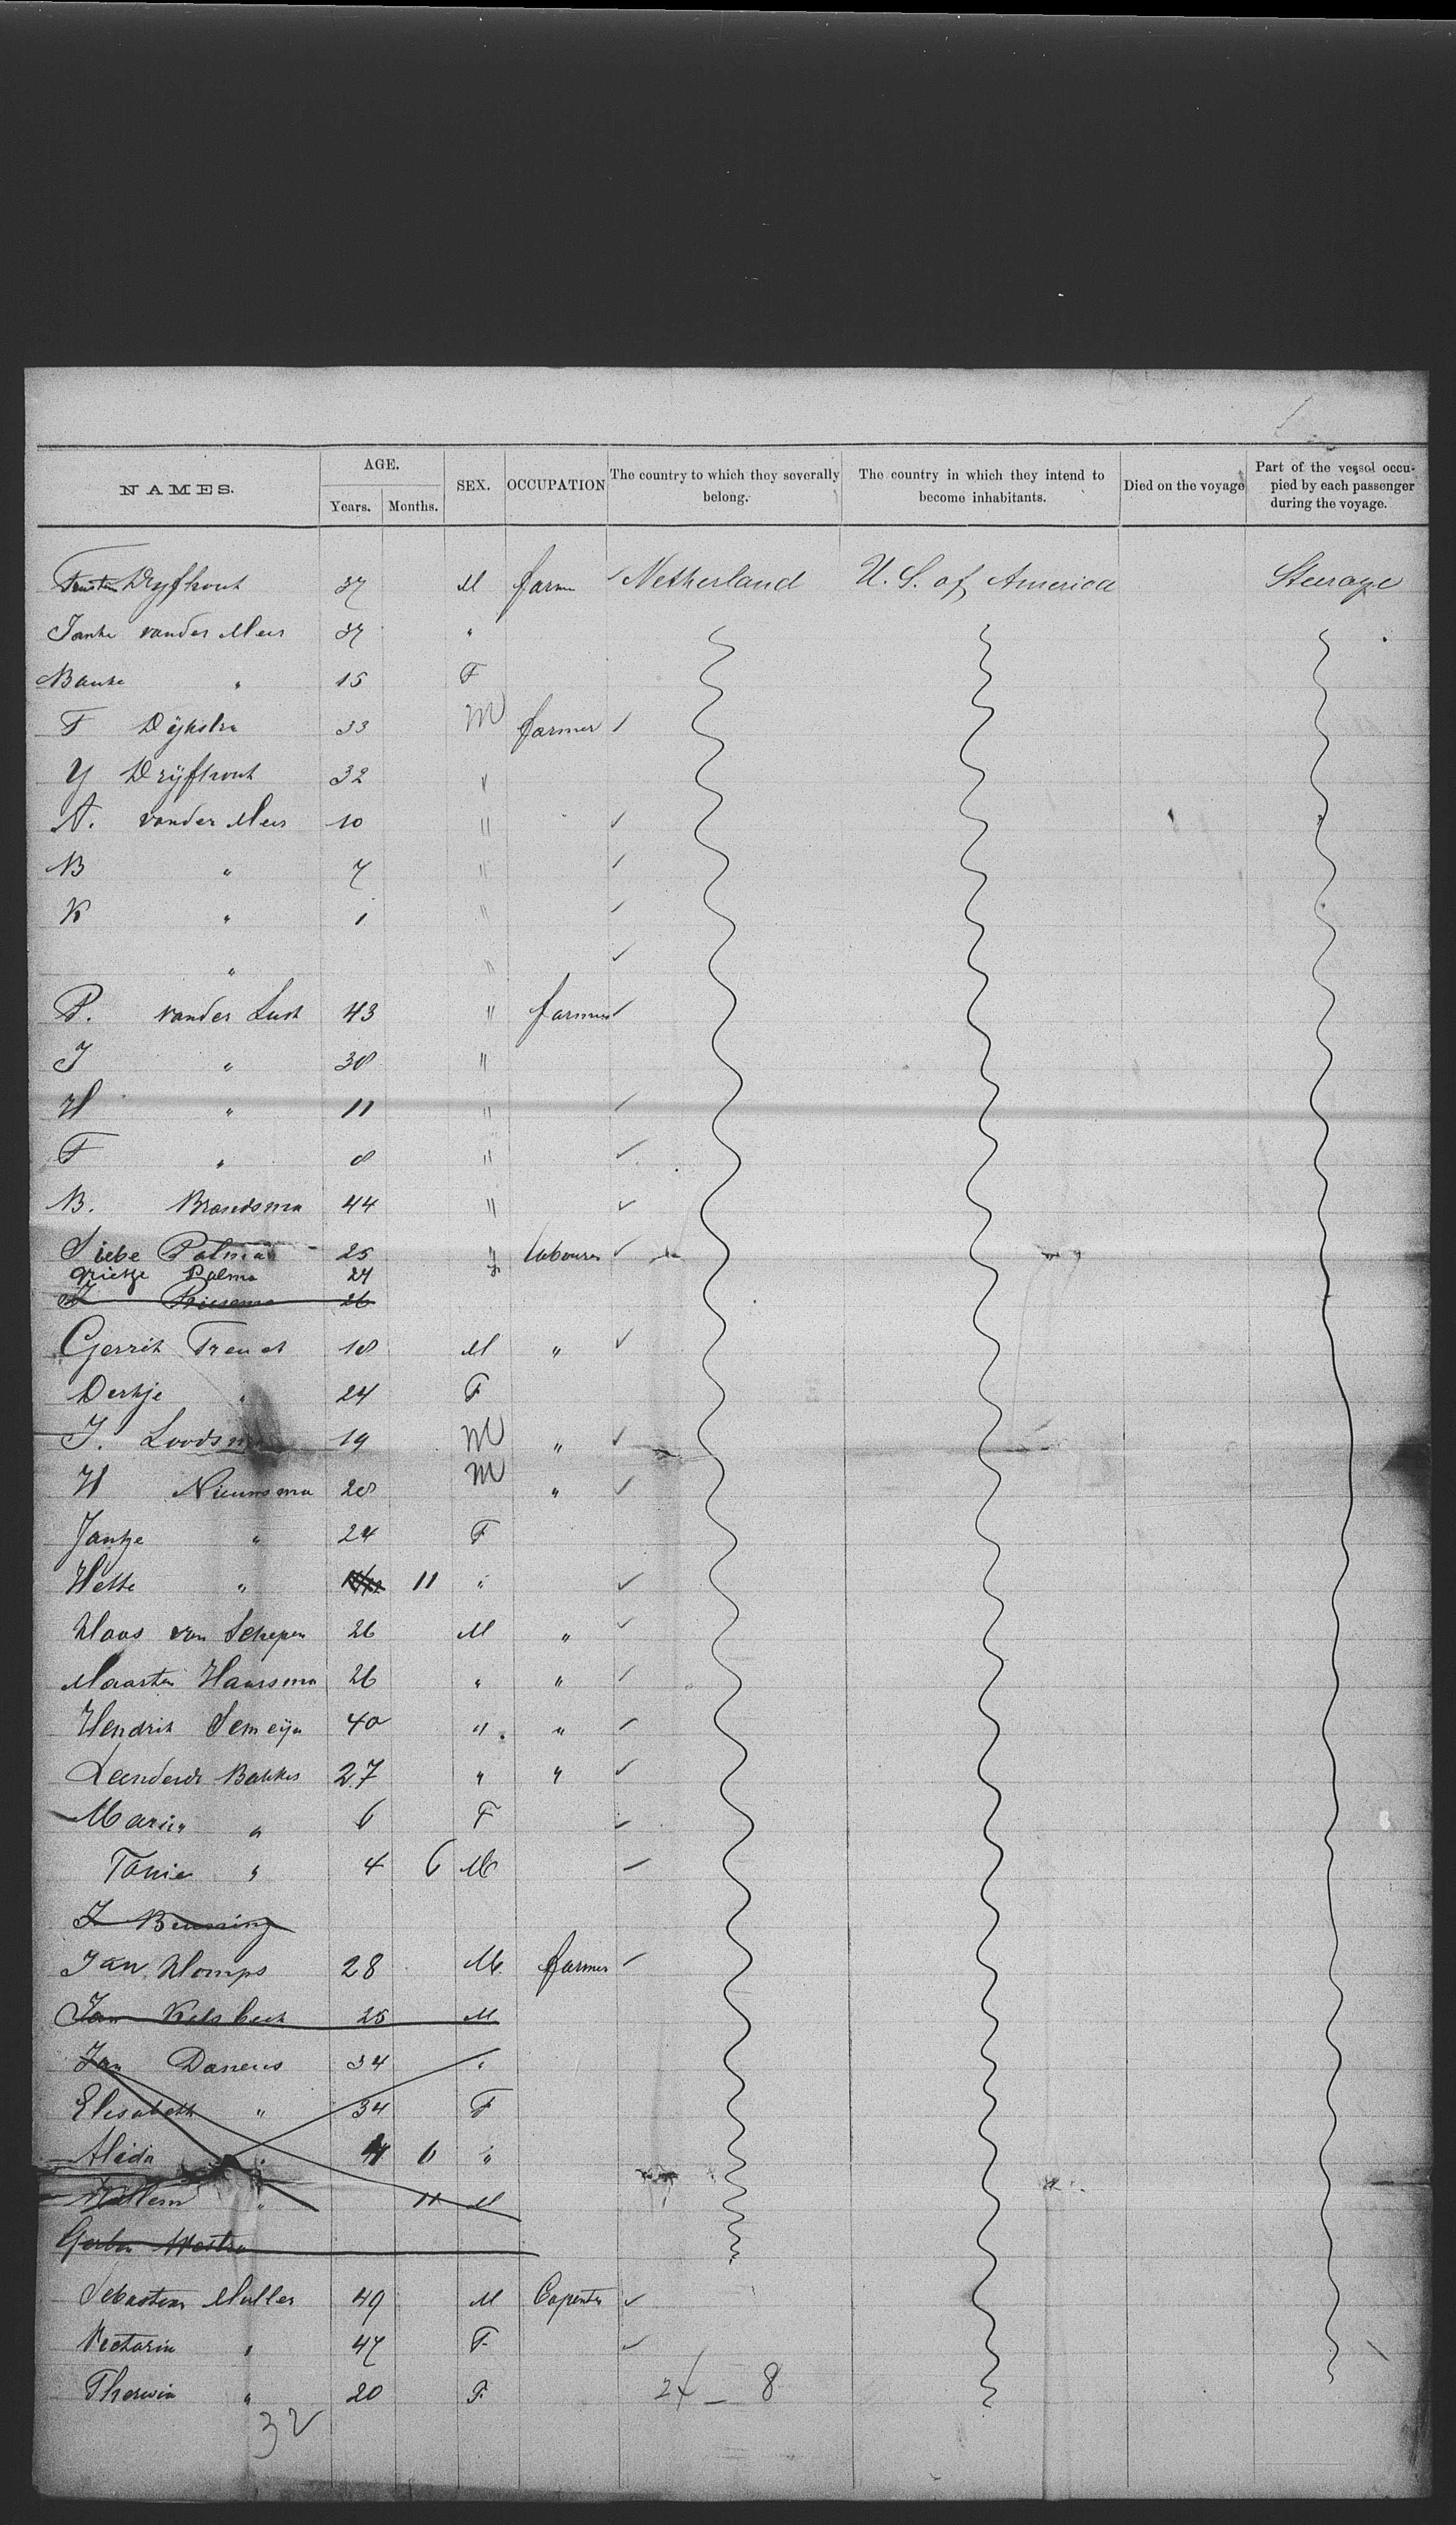 NAMES. AGE. SEX. OCCUPATION The country to which they severally belong. The country in which they intend to become inhabitants. Died on the voyage Part of the vessel occupied by each passenger during the voyage.
Years. Months.
Dryfhout 37 M farm Netherland U. S. of America Steerage
Janke van der Meer 37 "
Bauke " 15 F
F Dÿkstra 33 M farmer
Y Drÿfhout 32 "
A. van der Meer 10 "
B " 7 "
K " 1 "
" "
P. van der Lust 43 " farmer
J " 38 "
H " 11 "
F " 8 "
B. Brandsma 44 "
Siebe Palma 25 " labourer
Grietje Palma 24
26
Gerrit 18 M "
Derkje " 24 F
J. Loodsma 19 M "
H Nieuwsma 28 M "
Jantje " 24 F
Hette " 11 "
Klaas van Schepen 26 M "
Maarten Haarsma 26 " "
Hendrik Semeÿn 40 " "
Leendert Bakker 27 " "
Maria " 6 F
Tonie " 4 6 M
J Beunning
Jan Klomps 28 M. farmer
Jan 25 M
Jan Daneus 34 "
Elisabeth " 34 F
Alida " 4 6 "
Willem " 11 M
Gerben Westra
Sebastian Muller 49 M Capenter
Victoria " 47 F
" 20 F.
24 — 8
32